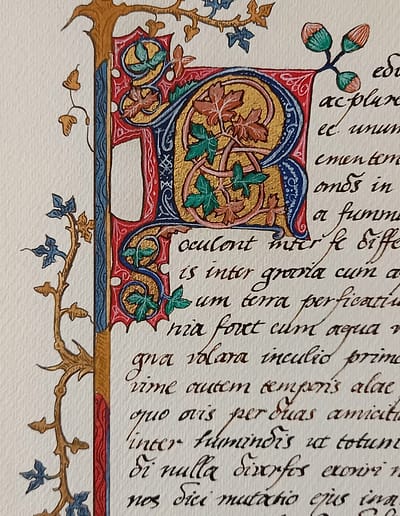 edi
ac plure
ec unum
ementem
in
a fumm
inter se diffe
is inter groria cum a
um terra perficatiu
nia foret cum aqua v
gna volara inculio prime
vime autem temporis alae
quo ovis per duas amiciti
inter humindis ut totum
di nulla diversos exoriri n
nos dici mutatio ejus ina